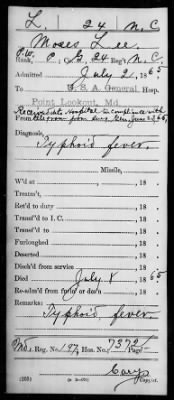 L 24 N.C.
Moses Lee
P.W. P, Co. G, 24 Reg't N.C.
Admitted July 2, 1865
To U. S. A. General Hosp.
Point Lookout, Md.
From
Diagnosis,
Typhoid fever.
Missile,
W'd at , 18
Treatm't,
Ret'd to duty , 18
Transf'd to I. C. , 18
Transf'd to , 18
Furloughed , 18
Deserted , 18
Disch'd from service , 18
Died July 8 , 1865
Re-adm'd from furlo' or des'n , 18
Remarks:
Typhoid fever
Md. Reg. No. 197; Hos. No. 7372; Page
Copyist.